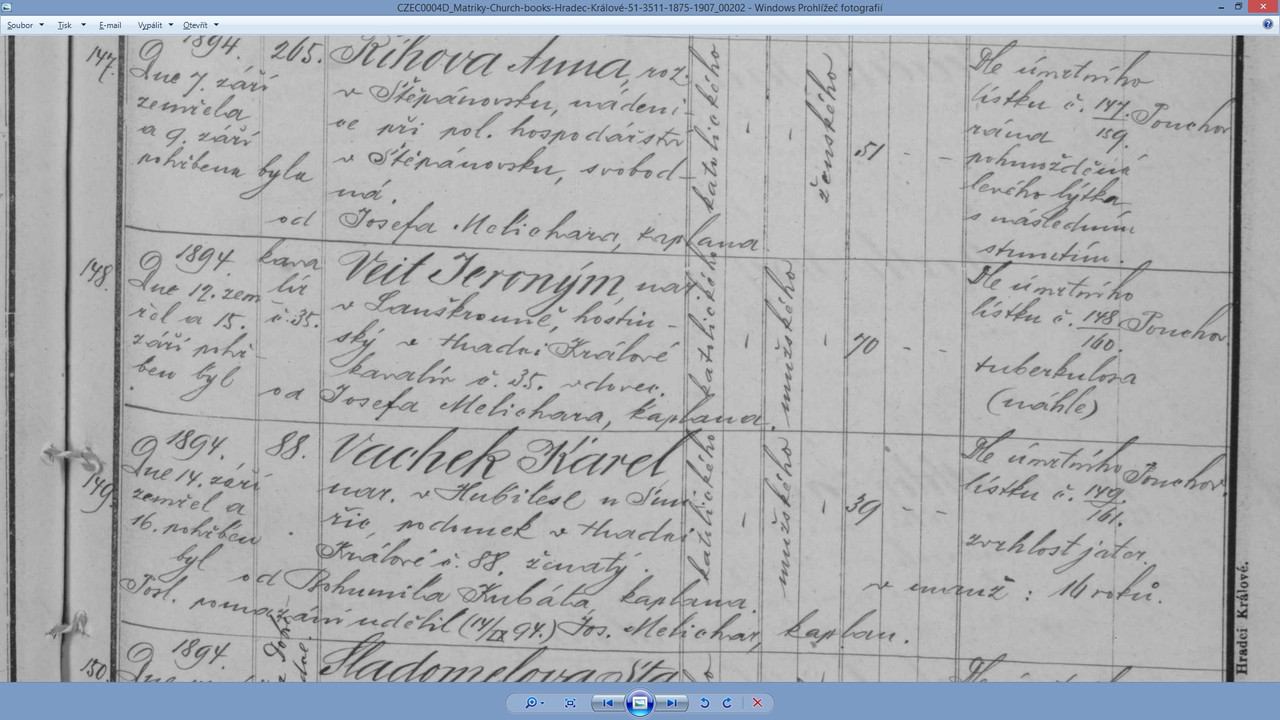 CZEC0004D_Matriky-Church-books-Hradec-Králové-51-3511-1875-1907_00202 - Windows Prohlížeč fotografií
Soubor Tisk E-mail Vypálit Otevřít
147. 1894. 265. Říhova Anna, roz.
Dne 7. září v Štěpánovsku, nádeni-
zemřela ce při pol. hospodářstv
a 9. září v Štěpánovsku, svobod-
pohřbena byla ná.
od Josefa Melichara, kaplana
katolického - - ženského 51 - -
Dle úmrtního
lístku č. 147/159. Pouchov
rána
pohmožděná
levého lýtka
s následním
strnutím.
148. 1894. kava Veit Jeroným nar.
Dne 12. zem lír v Lanškrouně, hostin-
řel a 15. č. 35. ský v Hradci Králové
září pohř- kavalír č. 35. vdovec.
ben byl od Josefa Melichara, kaplana.
katolického - mužského - 70 - -
Dle úmrtního
lístku č. 148/160. Pouchov.
tuberkulosa
(náhle)
149. 1894. 88. Vachek Karel
Dne 14. září nar. v u Smi
zemřel a řic, podomek v Hradci
16. pohřben Králové č. 88. ženatý.
byl od Bohumila Kubáta, kaplana.
Posl. pomazání udělil (14/IX 94.) Jos. Melichar, kaplan.
katolického - mužského - 39 - -
Dle úmrtního Pouchov.
lístku č. 149./161.
zvrhlost jater.
v manž: roků.
150. 1894.
Hradci Králové.